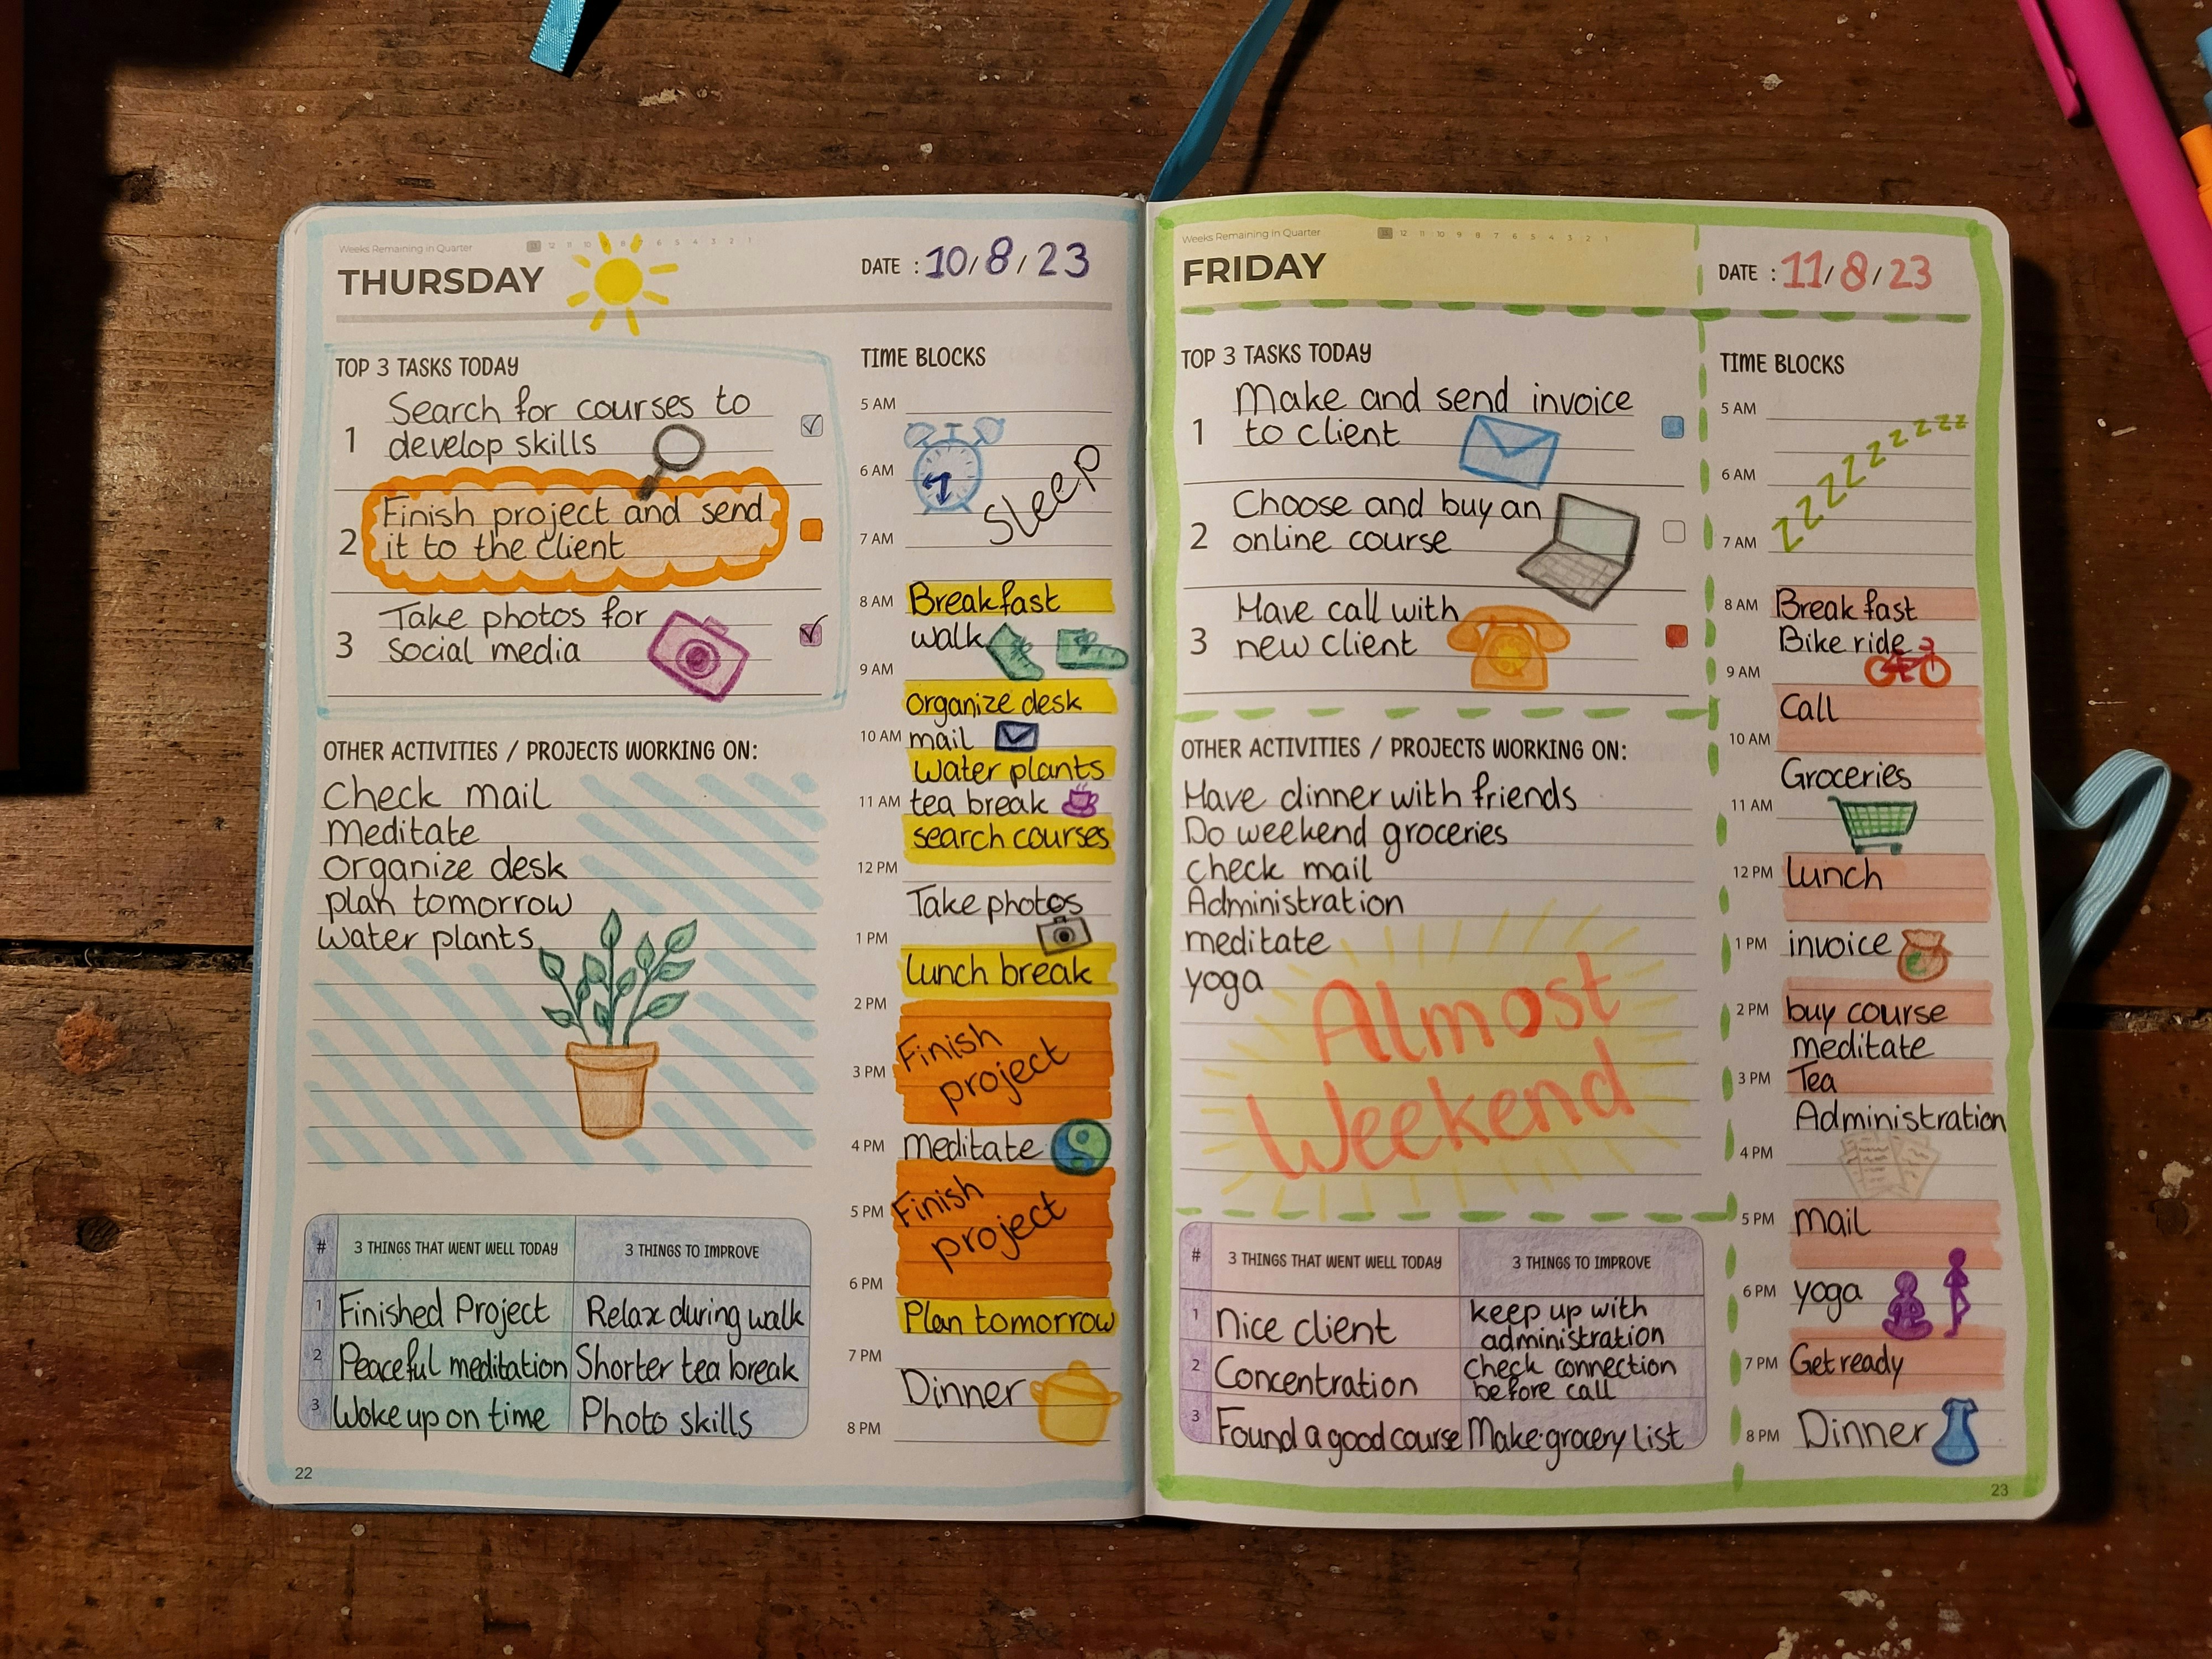 Weeks Remaining in Quarter 13 12 11 10 9 8 7 6 5 4 3 2 1
THURSDAY
DATE : 10/8/23
TOP 3 TASKS TODAY
1 Search for courses to
develop skills
2 Finish project and send
it to the client
3 Take photos for
social media
OTHER ACTIVITIES / PROJECTS WORKING ON:
Check mail
meditate
organize desk
plan tomorrow
water plants
# 3 THINGS THAT WENT WELL TODAY 3 THINGS TO IMPROVE
1 Finished Project Relax during walk
2 Peaceful meditation Shorter tea break
3 Woke up on time Photo skills
22
TIME BLOCKS
5 AM
6 AM
Sleep
7 AM
8 AM Breakfast
walk
9 AM
organize desk
10 AM mail
water plants
11 AM tea break
search courses
12 PM
Take photos
1 PM
lunch break
2 PM
Finish
3 PM project
4 PM meditate
5 PM Finish
project
6 PM
Plan tomorrow
7 PM
Dinner
8 PM
Weeks Remaining in Quarter 13 12 11 10 9 8 7 6 5 4 3 2 1
FRIDAY
DATE : 11/8/23
TOP 3 TASKS TODAY
1 Make and send invoice
to client
2 Choose and buy an
online course
3 Have call with
new client
OTHER ACTIVITIES / PROJECTS WORKING ON:
Have dinner with friends
Do weekend groceries
check mail
Administration
meditate
yoga
Almost
Weekend
# 3 THINGS THAT WENT WELL TODAY 3 THINGS TO IMPROVE
1 Nice client keep up with
administration
2 Concentration check connection
before call
3 Found a good course Make grocery list
TIME BLOCKS
5 AM
zzzzzzzzzz
6 AM
7 AM
8 AM Breakfast
Bike ride
9 AM
Call
10 AM
Groceries
11 AM
12 PM lunch
1 PM invoice
2 PM buy course
meditate
3 PM Tea
Administration
4 PM
5 PM mail
6 PM yoga
7 PM Get ready
8 PM Dinner
23